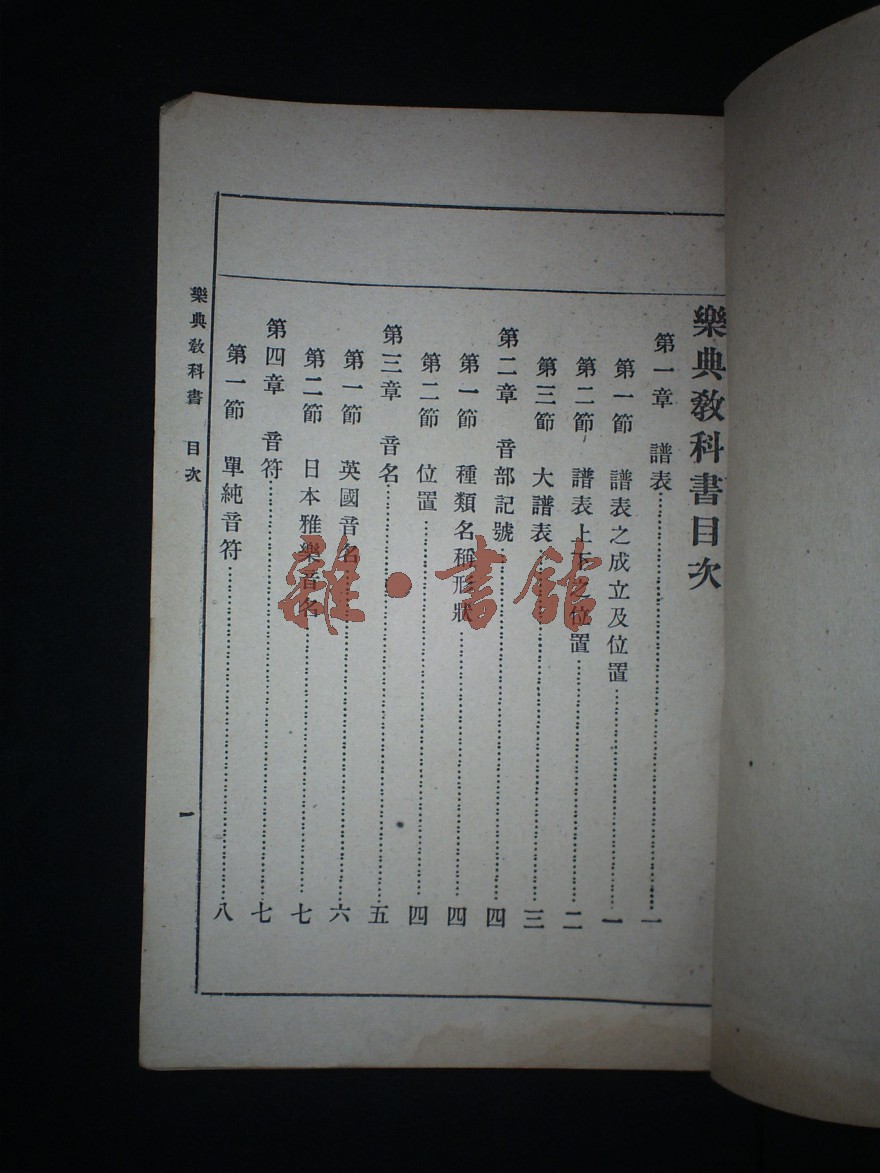 樂典教科書目次
第一章　譜表……一
第一節　譜表之成立及位置……一
第二節　譜表上下之位置……二
第三節　大譜表……三
第二章　音部記號……四
第一節　種類名稱形狀……四
第二節　位置……四
第三章　音名……五
第一節　英國音名……六
第二節　日本雅樂音名……七
第四章　音符……七
第一節　單純音符……八
樂典教科書　目次　一
雜·書館